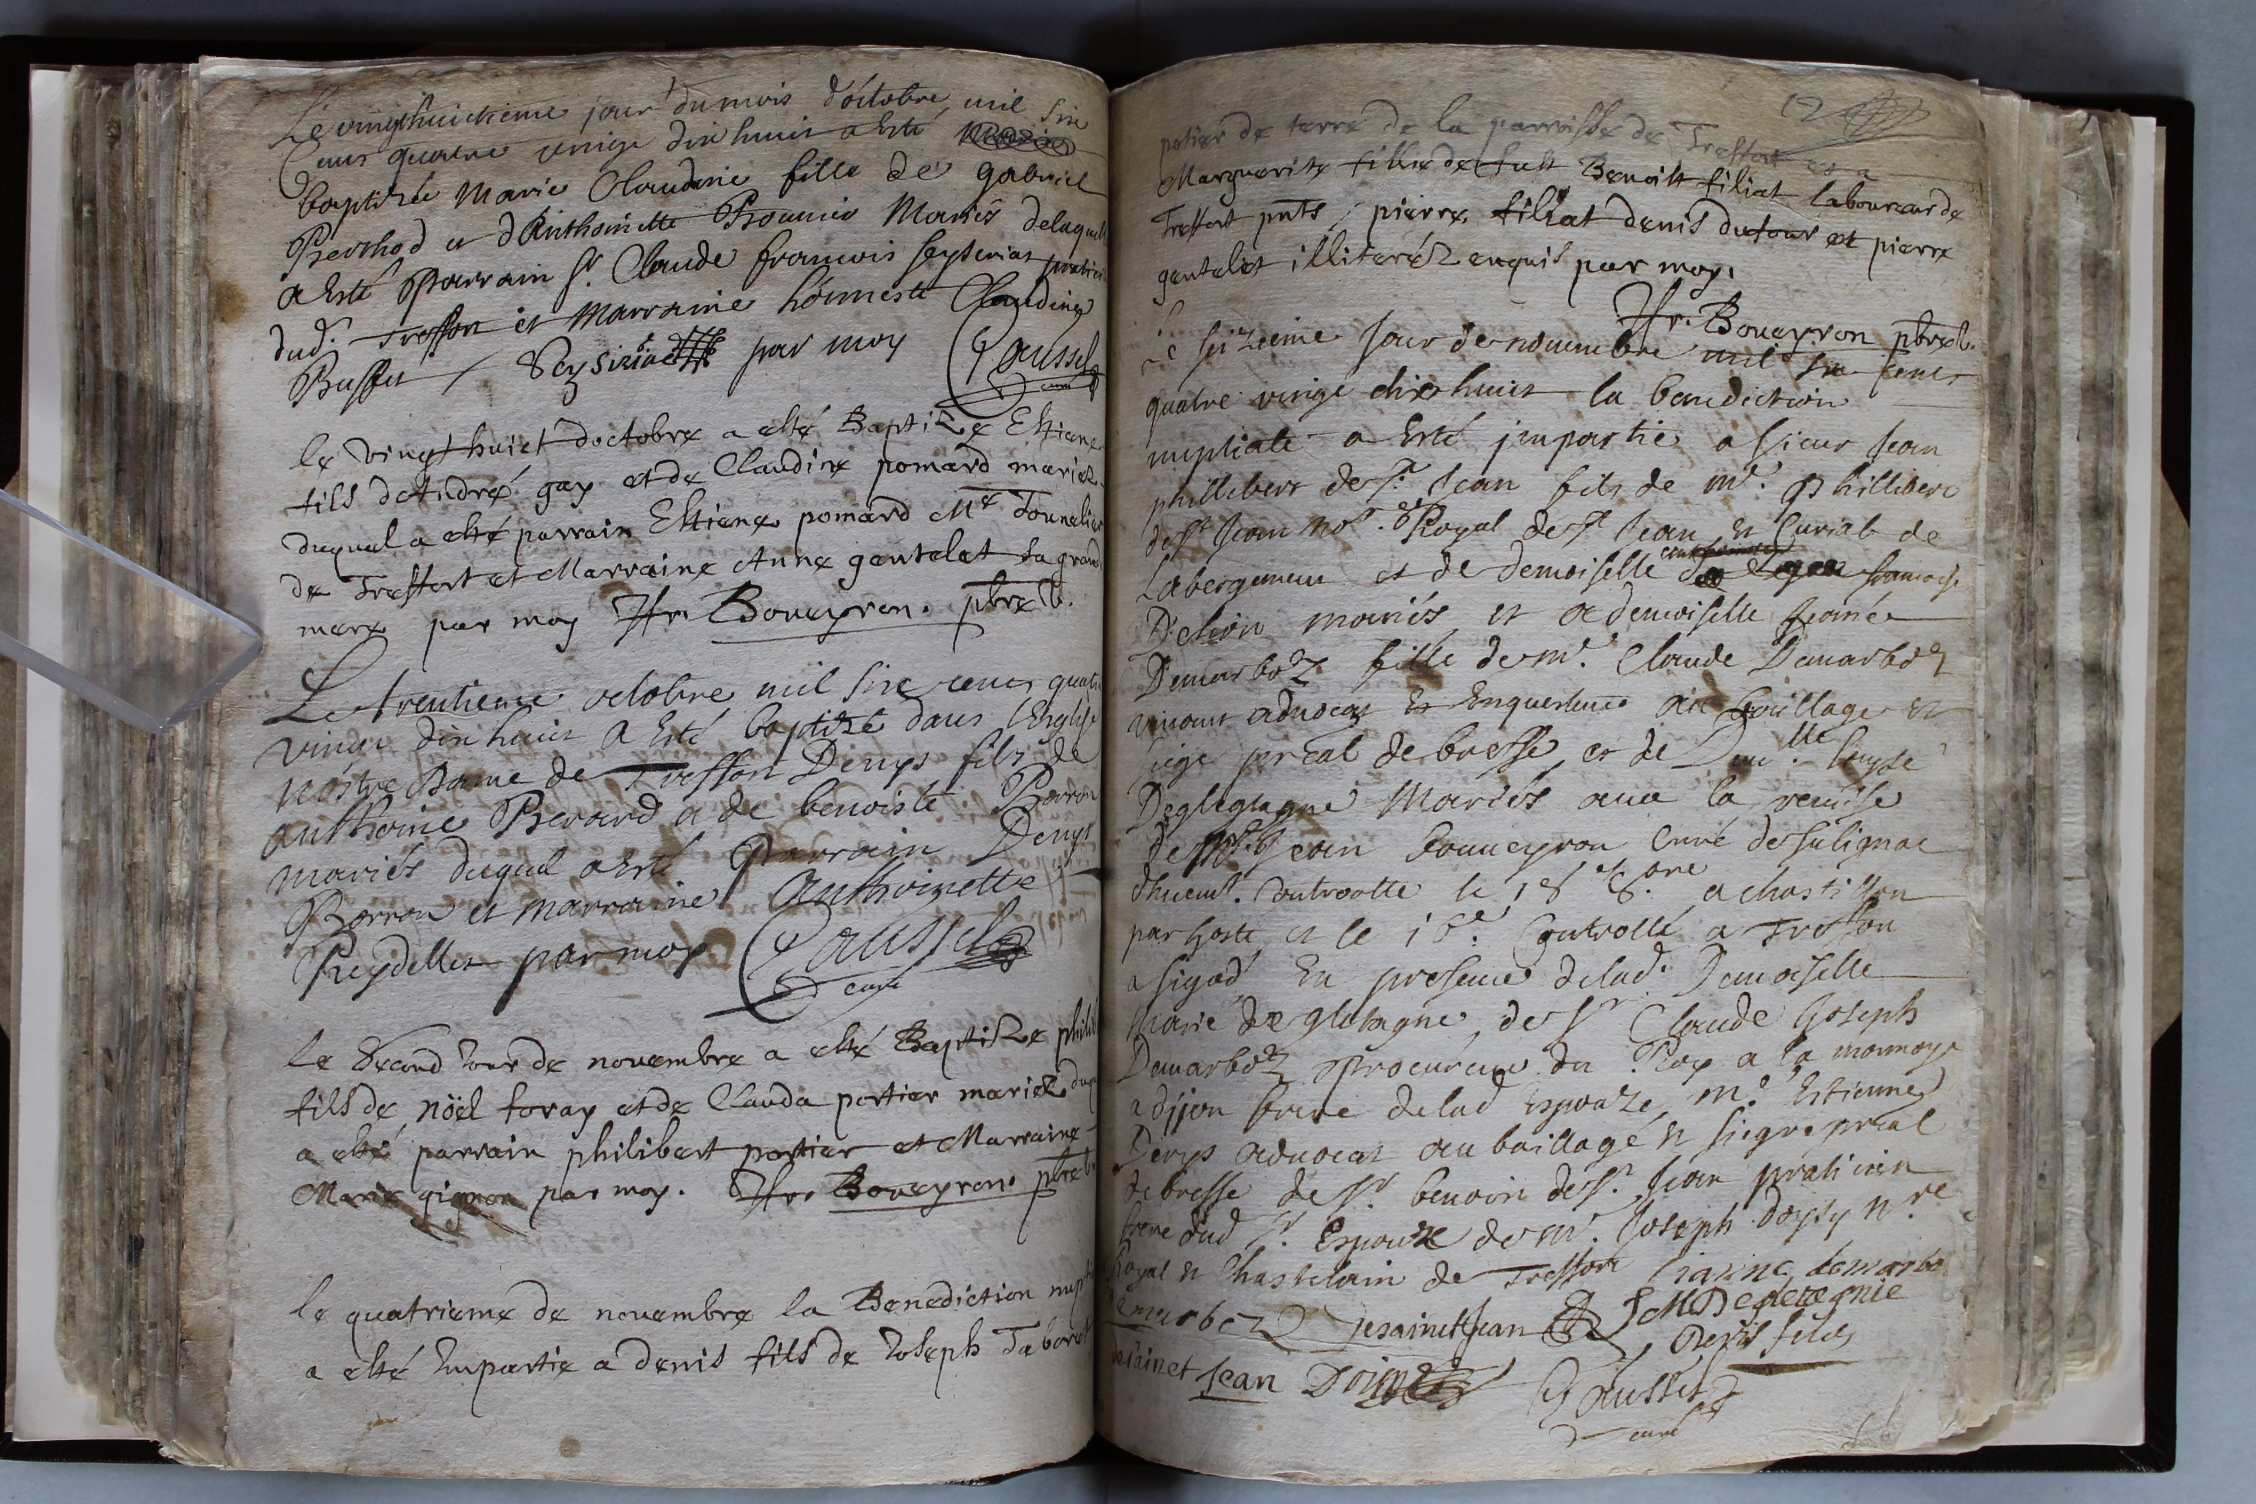 Le vingthuictieme jour du mois d'octobre mil six
Cens quatre vingt dix huit a esté
baptizée Marie Claudine fille de gabriel
Prevthod et d'Anthoinette Mariés delaquelle
a esté Parrain Sr. Claude francois Seyturiat
dud. Treffort et Marraine honneste Claudine
Buffet / par moy Gaussel
curé
le vingthuict doctobre a esté Baptize Estiene
fils de Andre gay et de Claudine pomard mariez
duqual a esté parrain Estiene pomard Me Tounelier
de Treffort et Marraine Anne gentelet sa grand
mere par moy Hr. Boueyron. pbre v.
Le trentieme octobre mil six cens quatre
vingt dix huit a Esté baptizé dans l'Englise
nostre Dame de Treffort Denys fils de
anthoine Berard a de benoiste Borron
mariés duqual a esté Parrain Denys
Borron et marraine Anthoinette
Reydellet par moy Gaussel
curé
le second Jour de novembre a esté Baptize phili
fils de nöel foray et de Clauda portier mariez duq
a esté parrain philibert portier et Marraine
Marie gignon par moy. Hr. Boueyron. pbre v.
le quatrieme de novembre la Benediction nupt
a esté Impartie a denis fils de Joseph Taboret
12
potier de terre de la parroisse de Treffort et a
Marguerite fillie de fust Benoist filiat laboureur de
Treffort pnts / pierre filiat denis dutour et pierre
gentelet illiteréz enquis par moy.
Hr. Boueyron pbre v.
Le seizieme Jour de nouembre mil six cens
quatre vingt dix huit la benediction
nuptiale a Esté jmpartie a sieur Jean
phillibert de St Jean fils de Mr. Phillibert
de St Jean Not. Royal de St Jean et Curial de
Labergement et de demoiselle francoise
mariés et a demoiselle Jeanne
Demarboz fille de mr. Claude Demarboz
vivant advocat Et Enquesteur au baillage et
siege preal de bresse, et de Dam.lle luyse
Degletagne Mariés avec la remise
de Mr. Jean boueyron Curé de salignac
controolle le 15e 8bre a chastillon
par hoste et le 16e Controllé a Treffort
a sigad En presence de lad. Demoiselle
Marie de gletagne, de Sr Claude Joseph
Demarboz Procureur du Roy a la monnoye
a dijon frere de lad Espouze, Mr. Estienne
Denys advocat au baillagé et siege preal
de bresse de Sr benoin de St Jean praticien
frere dud Sr. Espoux de Mr. Joseph doysy Nre
Royal et Chastelain de Treffort Jeanne demarbo
Demarboz desainct Jean M Degletagnie
Denys filis
desainct Jean
Gaussel
curé